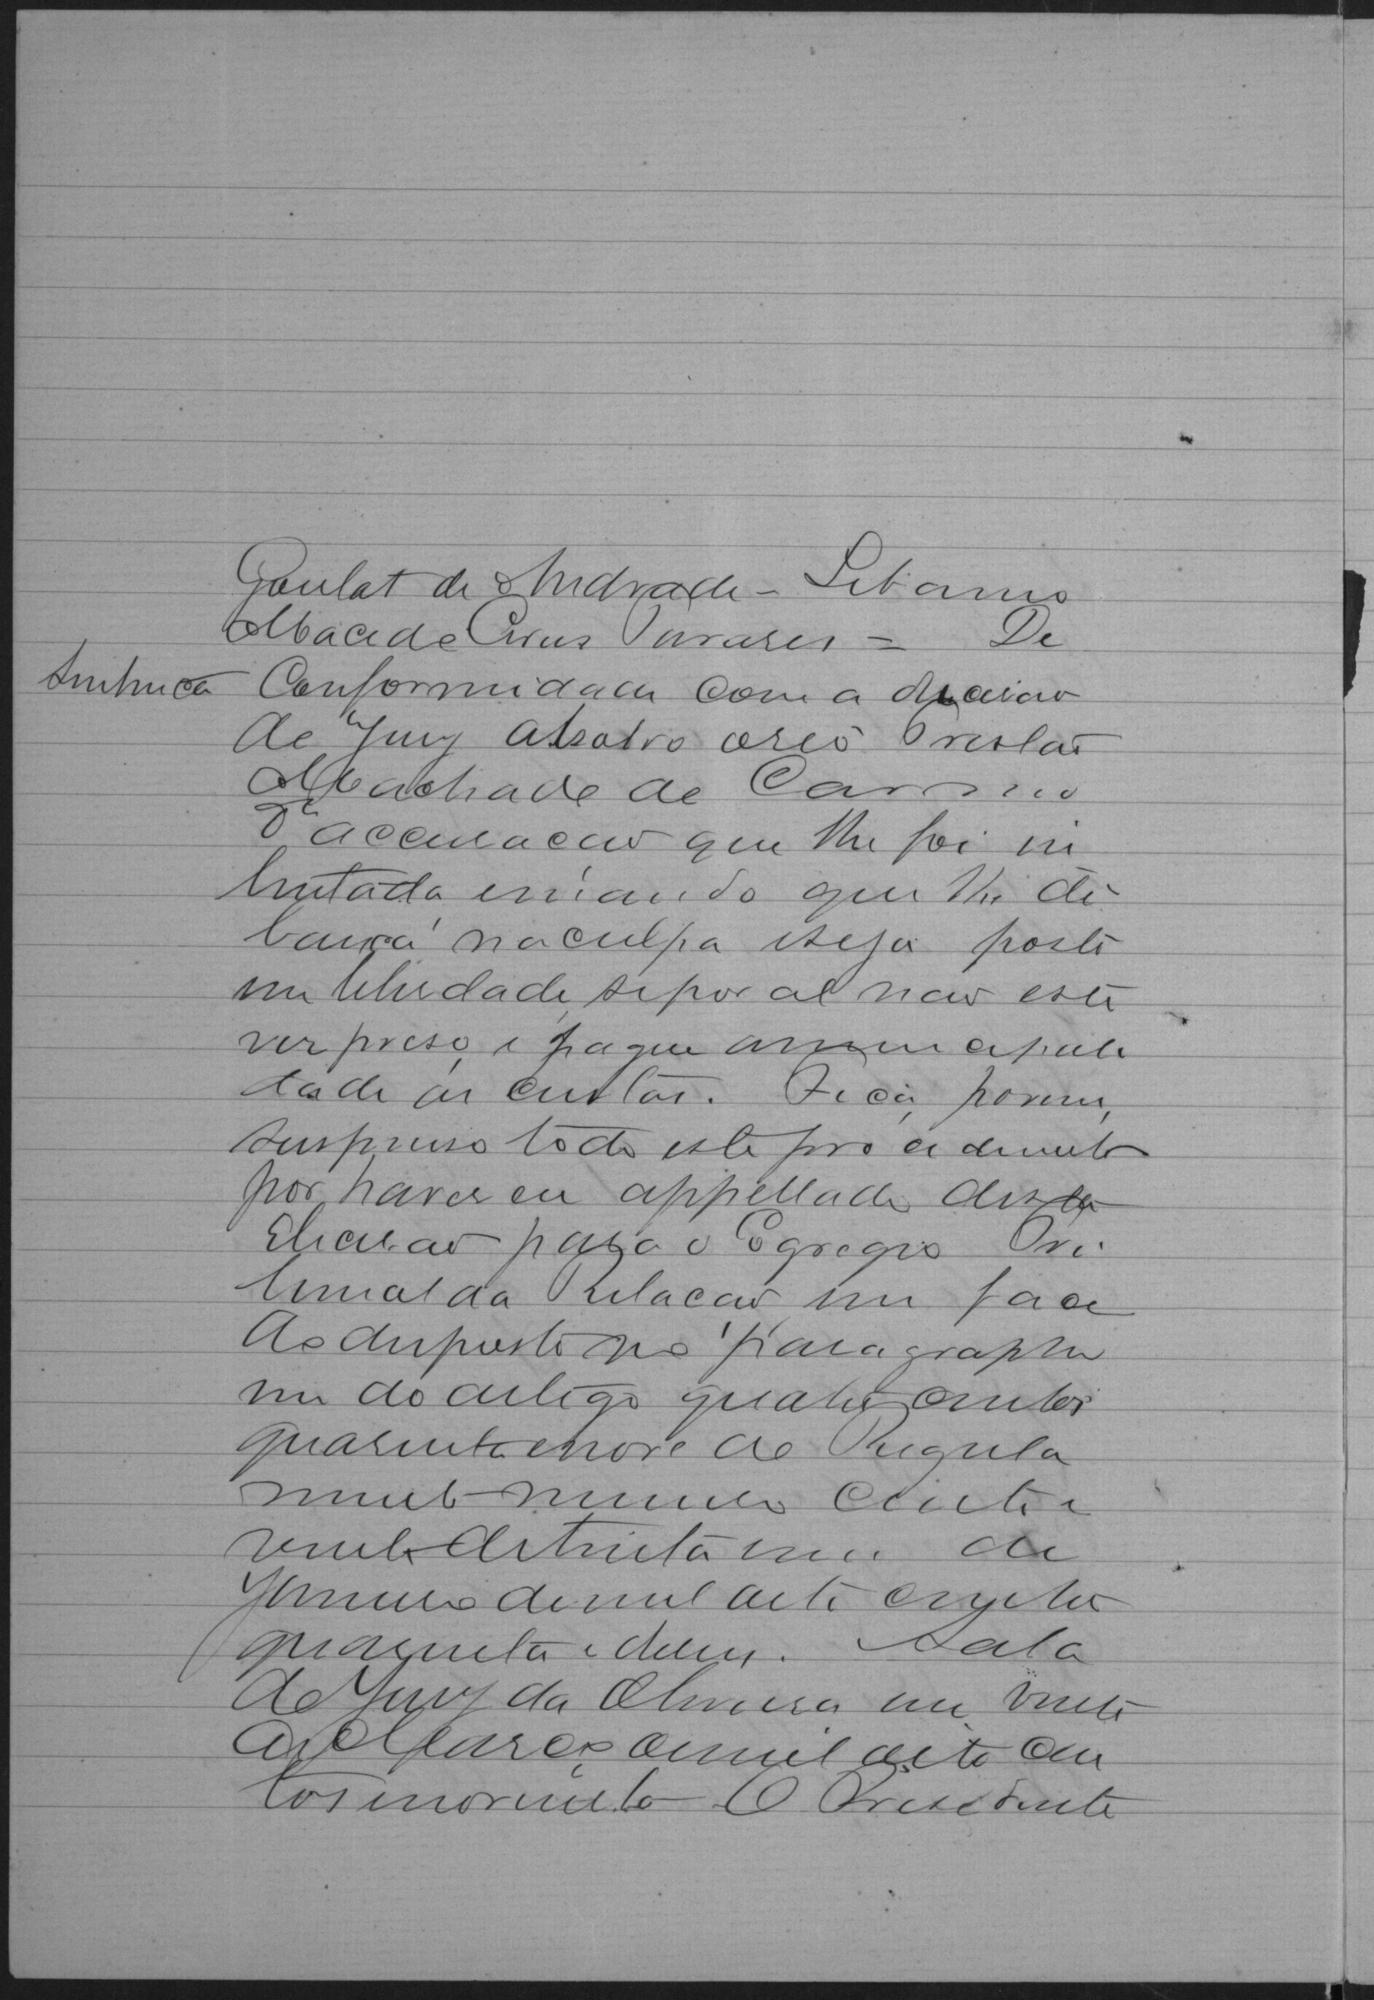 Goulat de Andrade - Libanio
Macedo Cruz Tavares = De
Sentença
Conformidade com a decisão
do Jury absolvo o reo
Machado de
D'accusação que lhe foi in
tentada, que lhe dê
baixa na culpa e seja posto
em liberdade, se por al não esti
ver preso, e pague a municipali
dade as custas. Fica, porem,
suspenso todo este procedimento
por haver eu appellado desta
decisão para o Egregio Tri
bunal da Relação, em face
do disposto no paragrapho
um do artigo quatrocentos
quarenta e nove do Regula
mento numero cento e
vinte de trinta e um de
Janeiro de mil oito centos
quarenta e dous. Sala
do Jury da Oliveira em vinte
de Março de mil oito cen
tos e noventa O Presidente